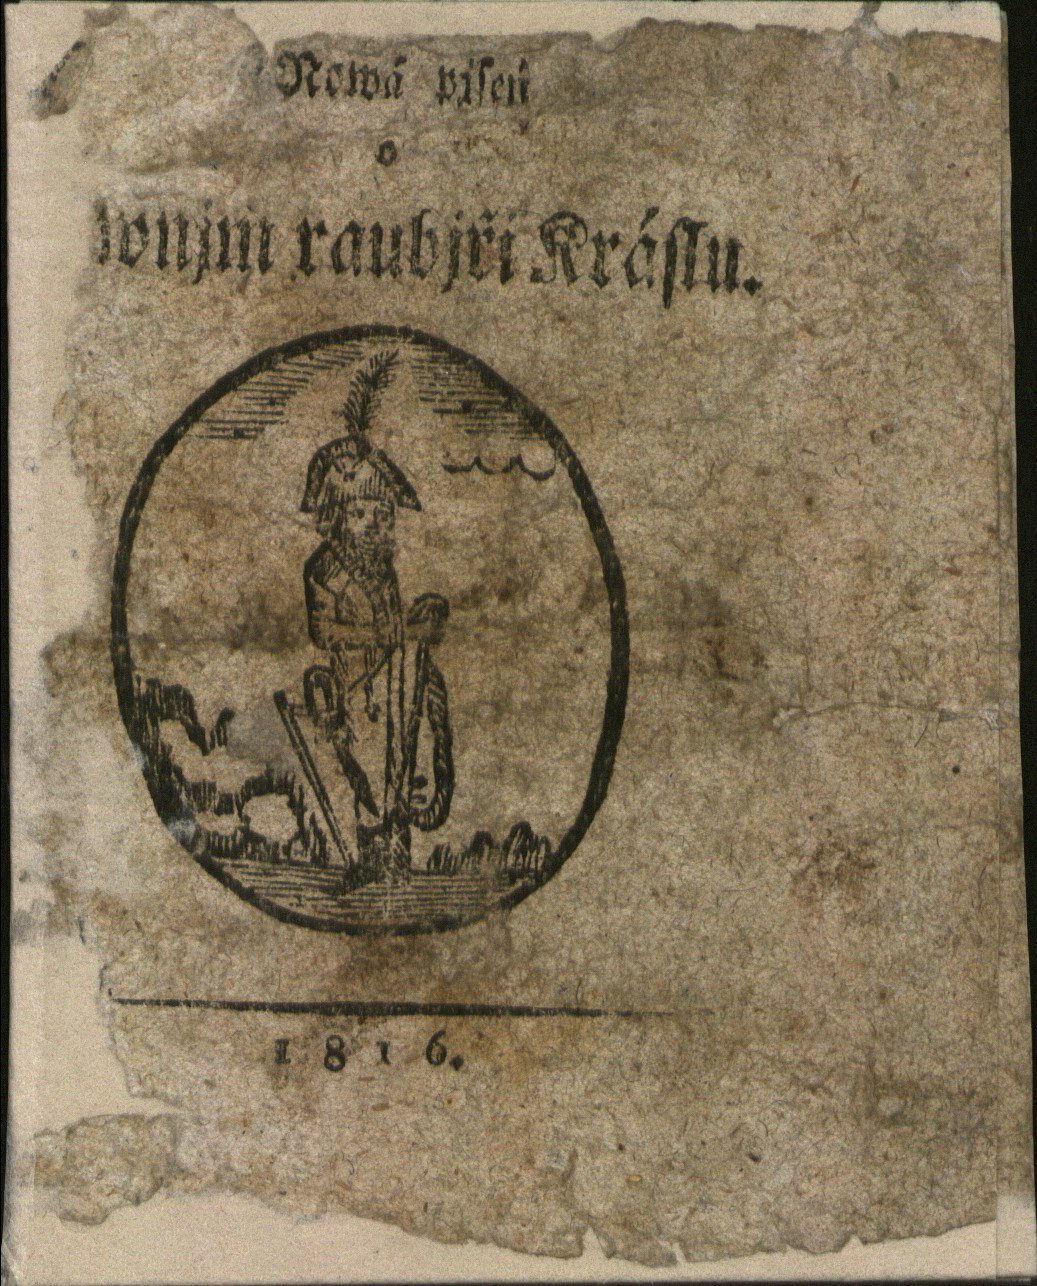 Nowá pjseň
o
raubjři Kráslu.
1816.